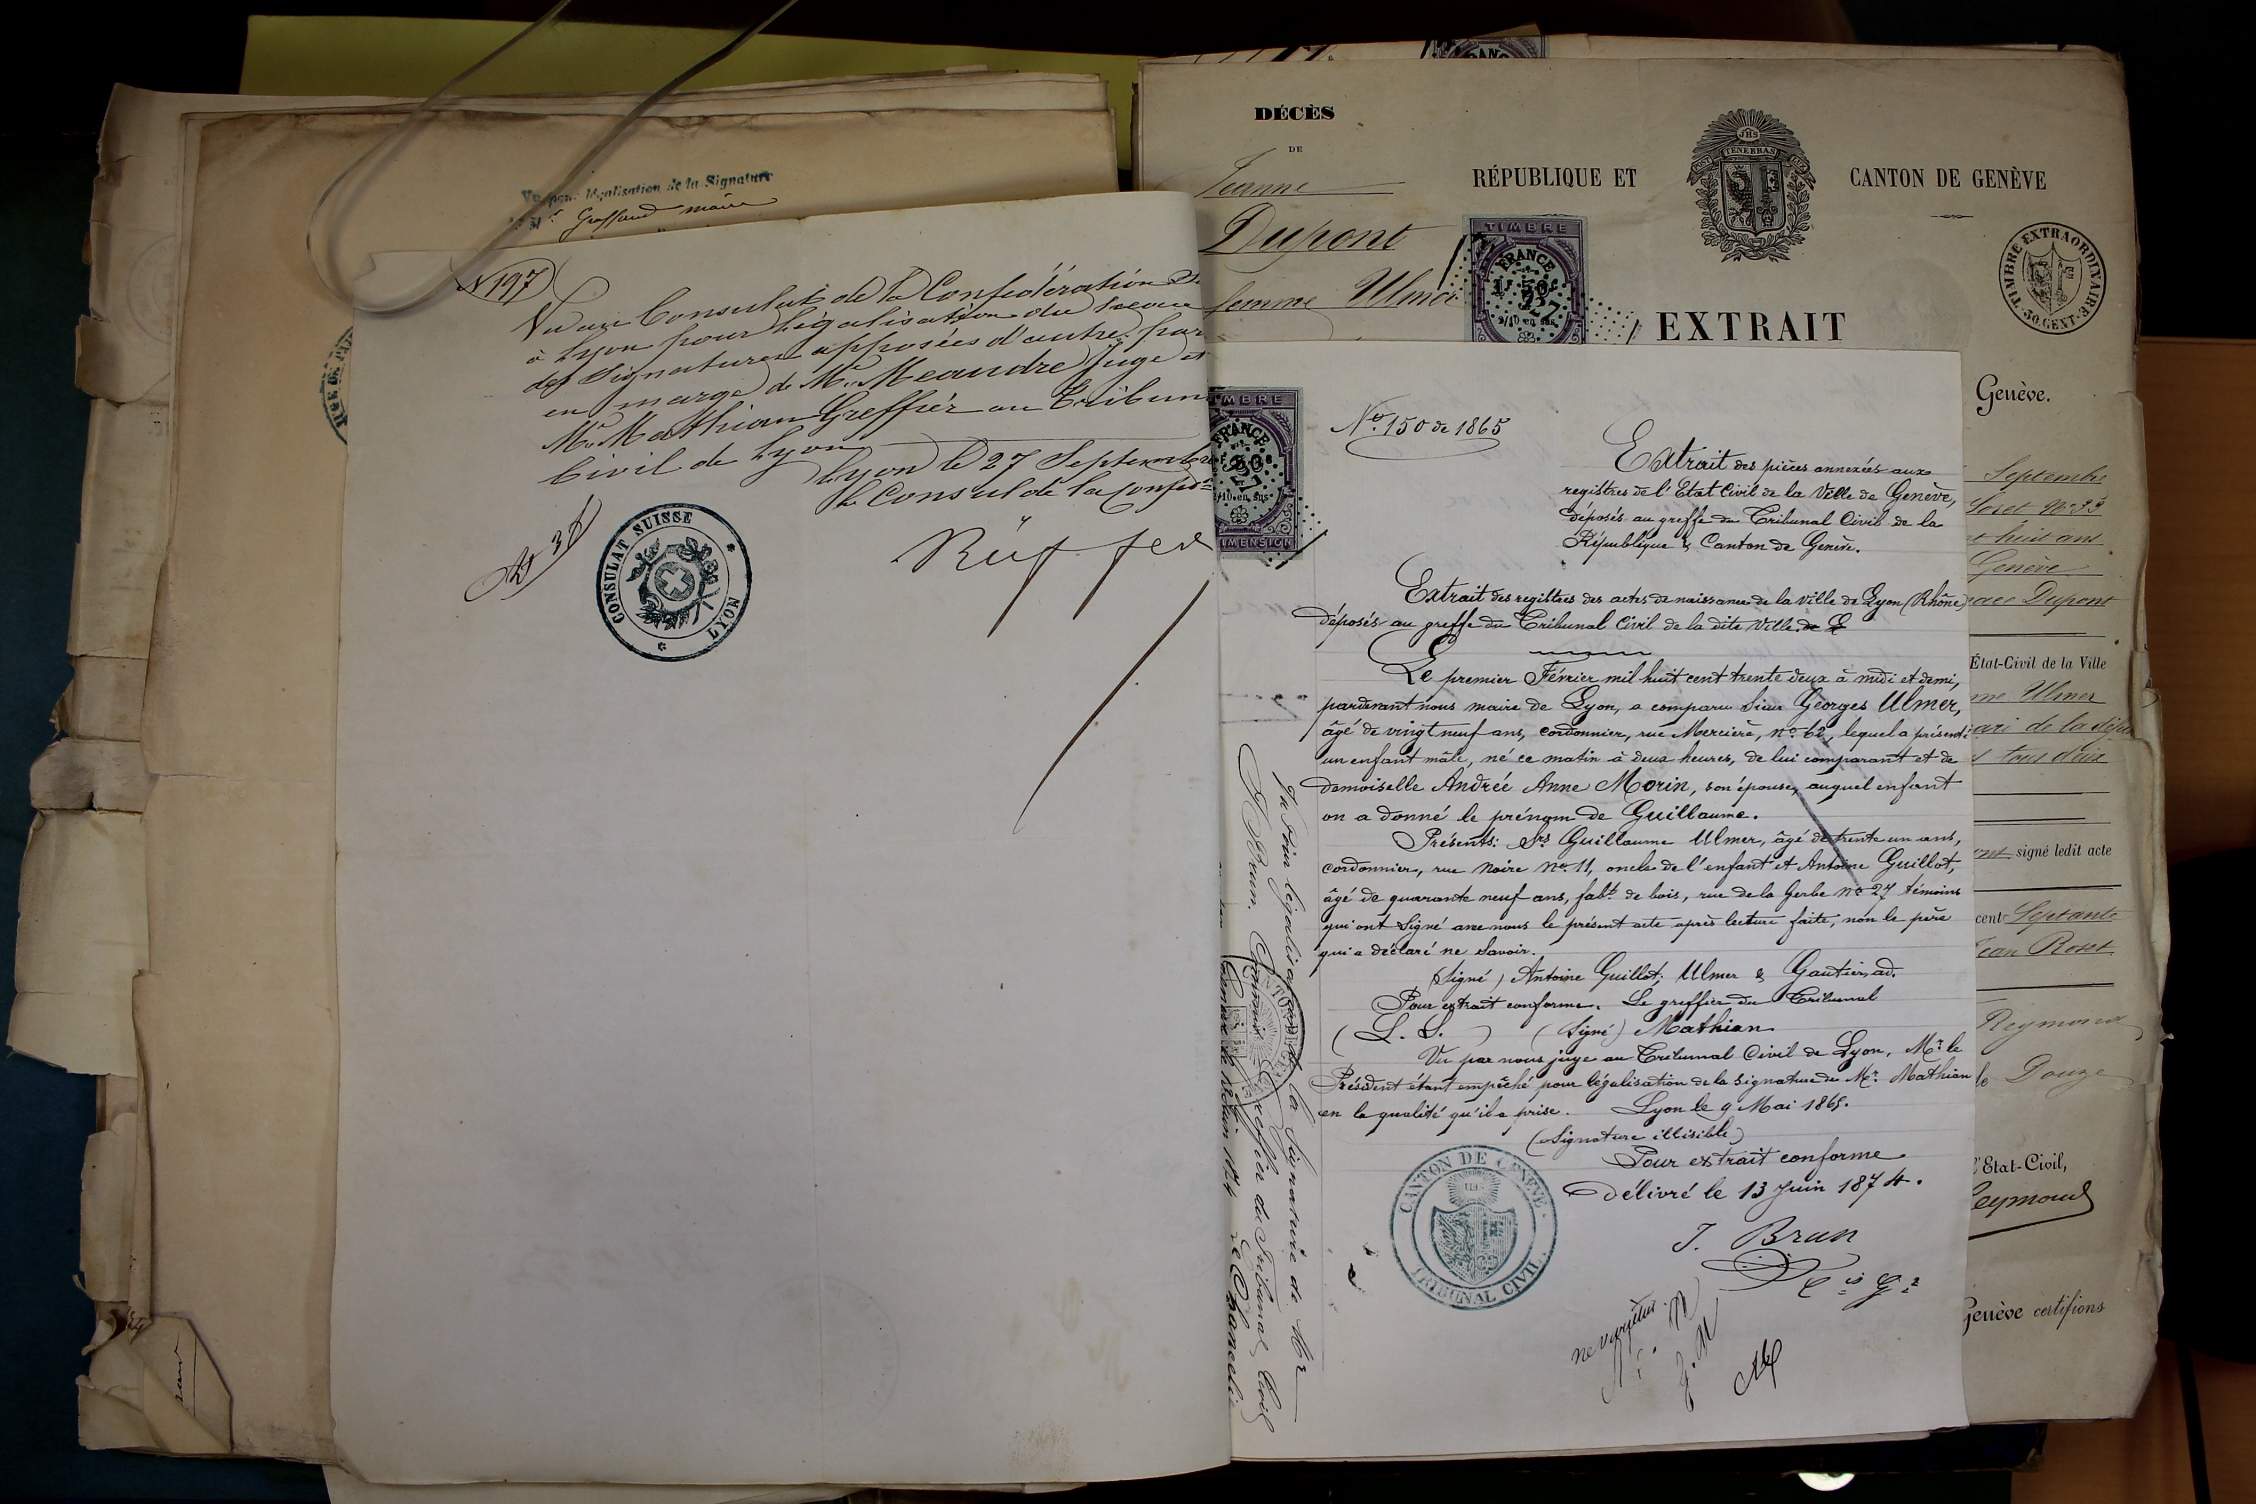 Vu pour légalisation de la Signature
maire
N 197
Vu au Consulat de la Confédération
à Lyon pour légalisation du sceau
des signatures apposées d'autre par
en marge de Mr. Meandre Juge et
Mr. Mathian Greffier au Tribun
Civil de Lyon
Lyon le 27 Septembre
Le Consul de la Conféd
Rüffer
CONSULAT SUISSE
LYON
DÉCÈS
DE
Jeanne
Dupont
femme Ulmer
RÉPUBLIQUE ET CANTON DE GENÈVE
JHS
POST TENEBRAS LUX
TIMBRE EXTRAORDINAIRE
30. CENT.
TIMBRE
FRANCE
2/10 en sus
EXTRAIT
Genève.
Septembre
huit ans
Genève
Dupont
État-Civil de la Ville
Ulmer
ari de la
tous deux
signé ledit acte
cent Septante
Jean Roset
Reymond
le Douze
l'Etat-Civil,
Reymond
Genève certifions
TIMBRE
FRANCE
2/10 en sus
DIMENSION
No. 150 de 1865
Extrait des pièces annexées aux
registres de l'Etat Civil de la Ville de Genève,
déposés au greffe du Tribunal Civil de la
République & Canton de Genève.
Extrait des registres des actes de naissance de la ville de Lyon (Rhône)
déposés au greffe du Tribunal Civil de la dite Ville.
Le premier Février mil huit cent trente deux à midi et demi,
pardevant nous maire de Lyon, a comparu Sieur Georges Ulmer,
âgé de vingt neuf ans, cordonnier, rue Mercière, no. 62, lequel a présenté
un enfant mâle, né ce matin à deux heures, de lui comparant et de
demoiselle Andrée Anne Morin, son épouse, auquel enfant
on a donné le prénom de Guillaume.
Présents: Srs Guillaume Ulmer, âgé de trente un ans,
cordonnier, rue Noire No. 11, oncle de l'enfant et Antoine Guillot,
âgé de quarante neuf ans, fabt. de bois, rue de la Gerbe no 27 témoins
qui ont signé avec nous le présent acte après lecture faite, non le père
qui a déclaré ne savoir.
(Signé) Antoine Guillot; Ulmer & Gautier, ad.
Pour extrait conforme. Le greffier du Tribunal
(L. S. ) (Signé) Mathian
Vu par nous juge au Tribunal Civil de Lyon, Mr. le
Président étant empêché pour légalisation de la signature de Mr. Mathian
en la qualité qu'il a prise. Lyon le 9 Mai 1865.
(Signature illisible)
Pour extrait conforme
Délivré le 13 Juin 1874.
J. Brun
Cis Gr
CANTON DE GENÈVE
TRIBUNAL CIVIL
ne varietur
Vu pour légalisation de la Signature de Mr
J. Brun. Commis Greffier du Tribunal Civil
Genève le Juin 1874 Le Chancelier